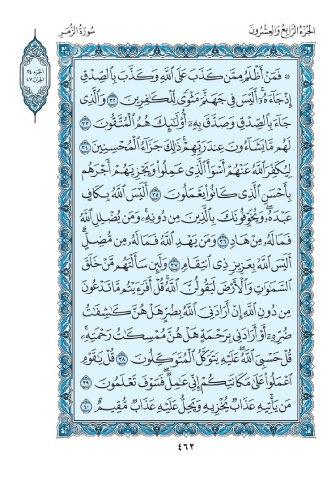 الجزء الرابع والعشرون
سورة الزمر
الجزء ٢٤
۞ فَمَنْ أَظْلَمُ مِمَّن كَذَبَ عَلَى ٱللَّهِ وَكَذَّبَ بِٱلصِّدْقِ
إِذْ جَآءَهُۥٓ ۚ أَلَيْسَ فِى جَهَنَّمَ مَثْوًى لِّلْكَٰفِرِينَ ٣٢ وَٱلَّذِى
جَآءَ بِٱلصِّدْقِ وَصَدَّقَ بِهِۦٓ ۙ أُو۟لَٰٓئِكَ هُمُ ٱلْمُتَّقُونَ ٣٣
لَهُم مَّا يَشَآءُونَ عِندَ رَبِّهِمْ ۚ ذَٰلِكَ جَزَآءُ ٱلْمُحْسِنِينَ ٣٤
لِيُكَفِّرَ ٱللَّهُ عَنْهُمْ أَسْوَأَ ٱلَّذِى عَمِلُوا۟ وَيَجْزِيَهُمْ أَجْرَهُم
بِأَحْسَنِ ٱلَّذِى كَانُوا۟ يَعْمَلُونَ ٣٥ أَلَيْسَ ٱللَّهُ بِكَافٍ
عَبْدَهُۥ ۖ وَيُخَوِّفُونَكَ بِٱلَّذِينَ مِن دُونِهِۦ ۚ وَمَن يُضْلِلِ ٱللَّهُ
فَمَا لَهُۥ مِنْ هَادٍ ٣٦ وَمَن يَهْدِ ٱللَّهُ فَمَا لَهُۥ مِن مُّضِلٍّ ۗ
أَلَيْسَ ٱللَّهُ بِعَزِيزٍ ذِى ٱنتِقَامٍ ٣٧ وَلَئِن سَأَلْتَهُم مَّنْ خَلَقَ
ٱلسَّمَٰوَٰتِ وَٱلْأَرْضَ لَيَقُولُنَّ ٱللَّهُ ۚ قُلْ أَفَرَءَيْتُم مَّا تَدْعُونَ
مِن دُونِ ٱللَّهِ إِنْ أَرَادَنِىَ ٱللَّهُ بِضُرٍّ هَلْ هُنَّ كَٰشِفَٰتُ
ضُرِّهِۦٓ أَوْ أَرَادَنِى بِرَحْمَةٍ هَلْ هُنَّ مُمْسِكَٰتُ رَحْمَتِهِۦ ۚ
قُلْ حَسْبِىَ ٱللَّهُ ۖ عَلَيْهِ يَتَوَكَّلُ ٱلْمُتَوَكِّلُونَ ٣٨ قُلْ يَٰقَوْمِ
ٱعْمَلُوا۟ عَلَىٰ مَكَانَتِكُمْ إِنِّى عَٰمِلٌ ۖ فَسَوْفَ تَعْلَمُونَ ٣٩
مَن يَأْتِيهِ عَذَابٌ يُخْزِيهِ وَيَحِلُّ عَلَيْهِ عَذَابٌ مُّقِيمٌ ٤٠
٤٦٢